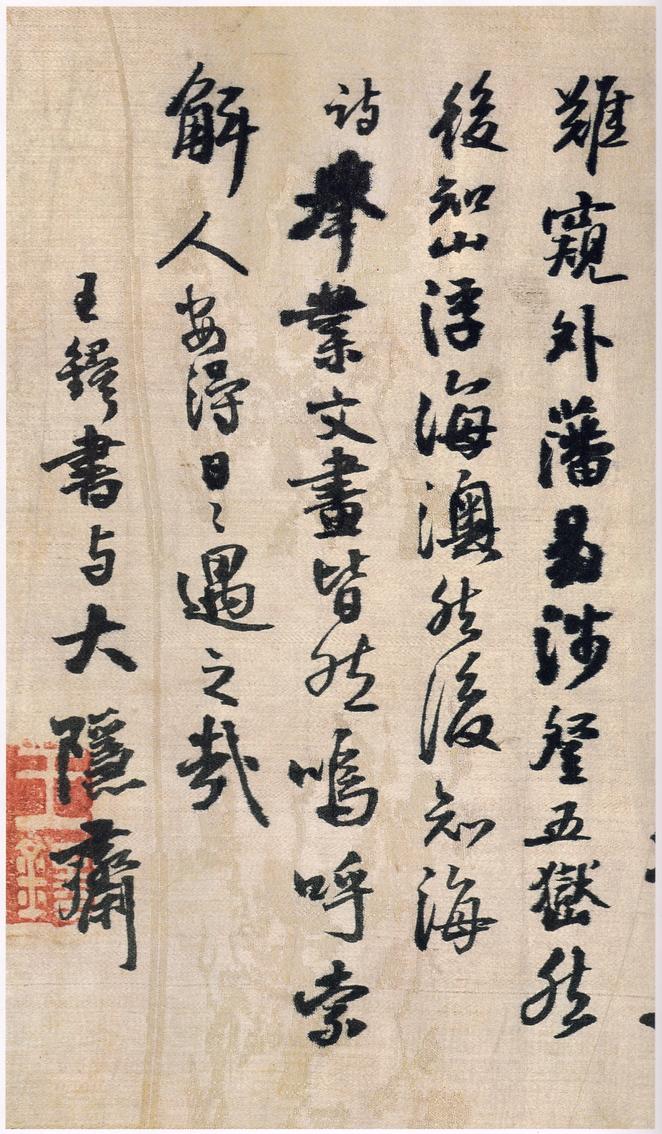 難窺外藩易涉登五嶽然
後知山浮海澳然後知海
詩舉業文畫皆然嗚呼索
解人安得日〻遇之哉
王鐸書与大隱齋
王鐸